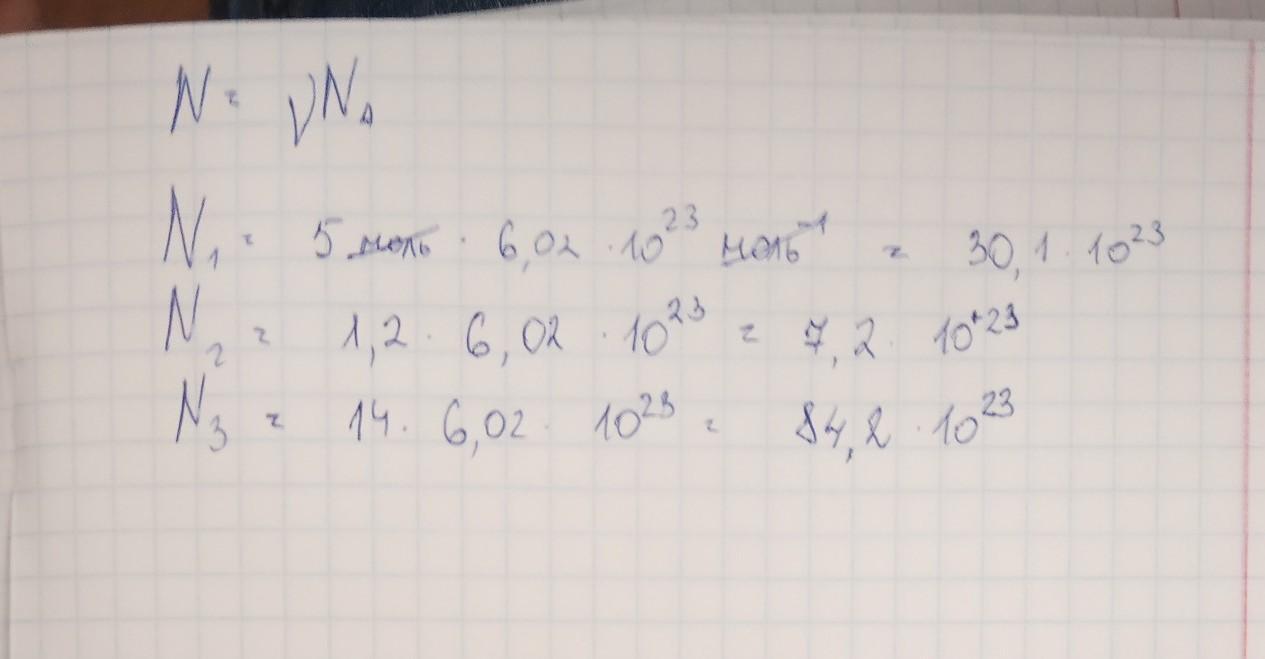 N = νN_A
N₁ = 5 моль · 6,02 · 10²³ моль⁻¹ = 30,1 · 10²³
N₂ = 1,2 · 6,02 · 10²³ = 7,2 · 10²³
N₃ = 14 · 6,02 · 10²³ = 84,2 · 10²³